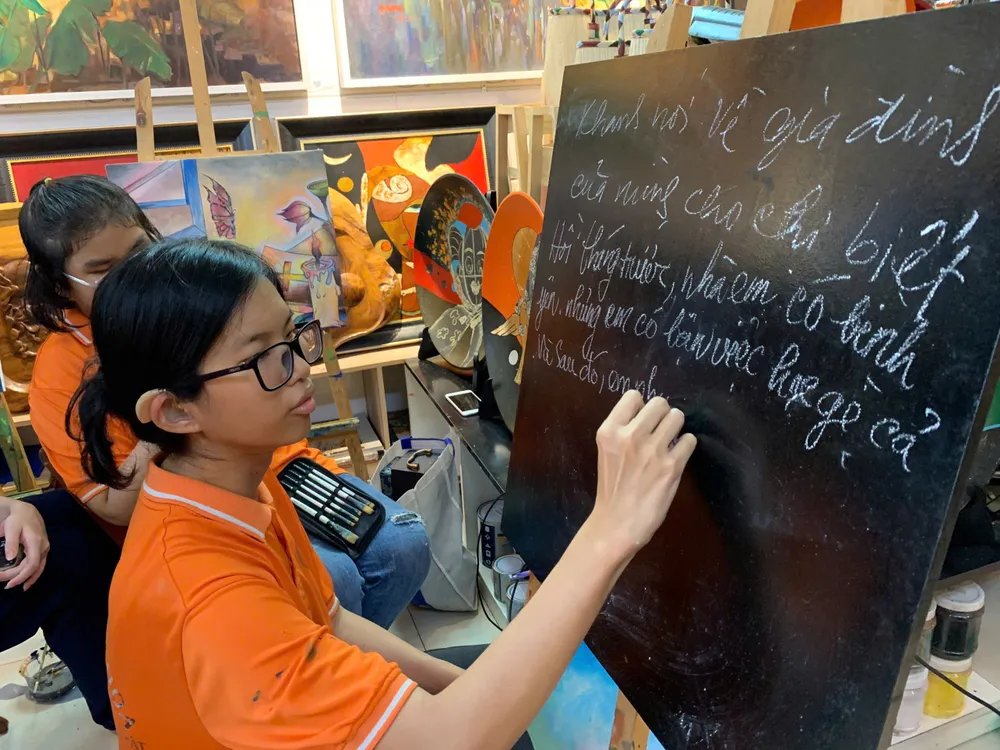 Khanh nói về gia đình
của mình cho chị biết
Hồi tháng trước, nhà em có bình
yên. nhưng em có bận việc học gì cả
Và sau đó, em nh